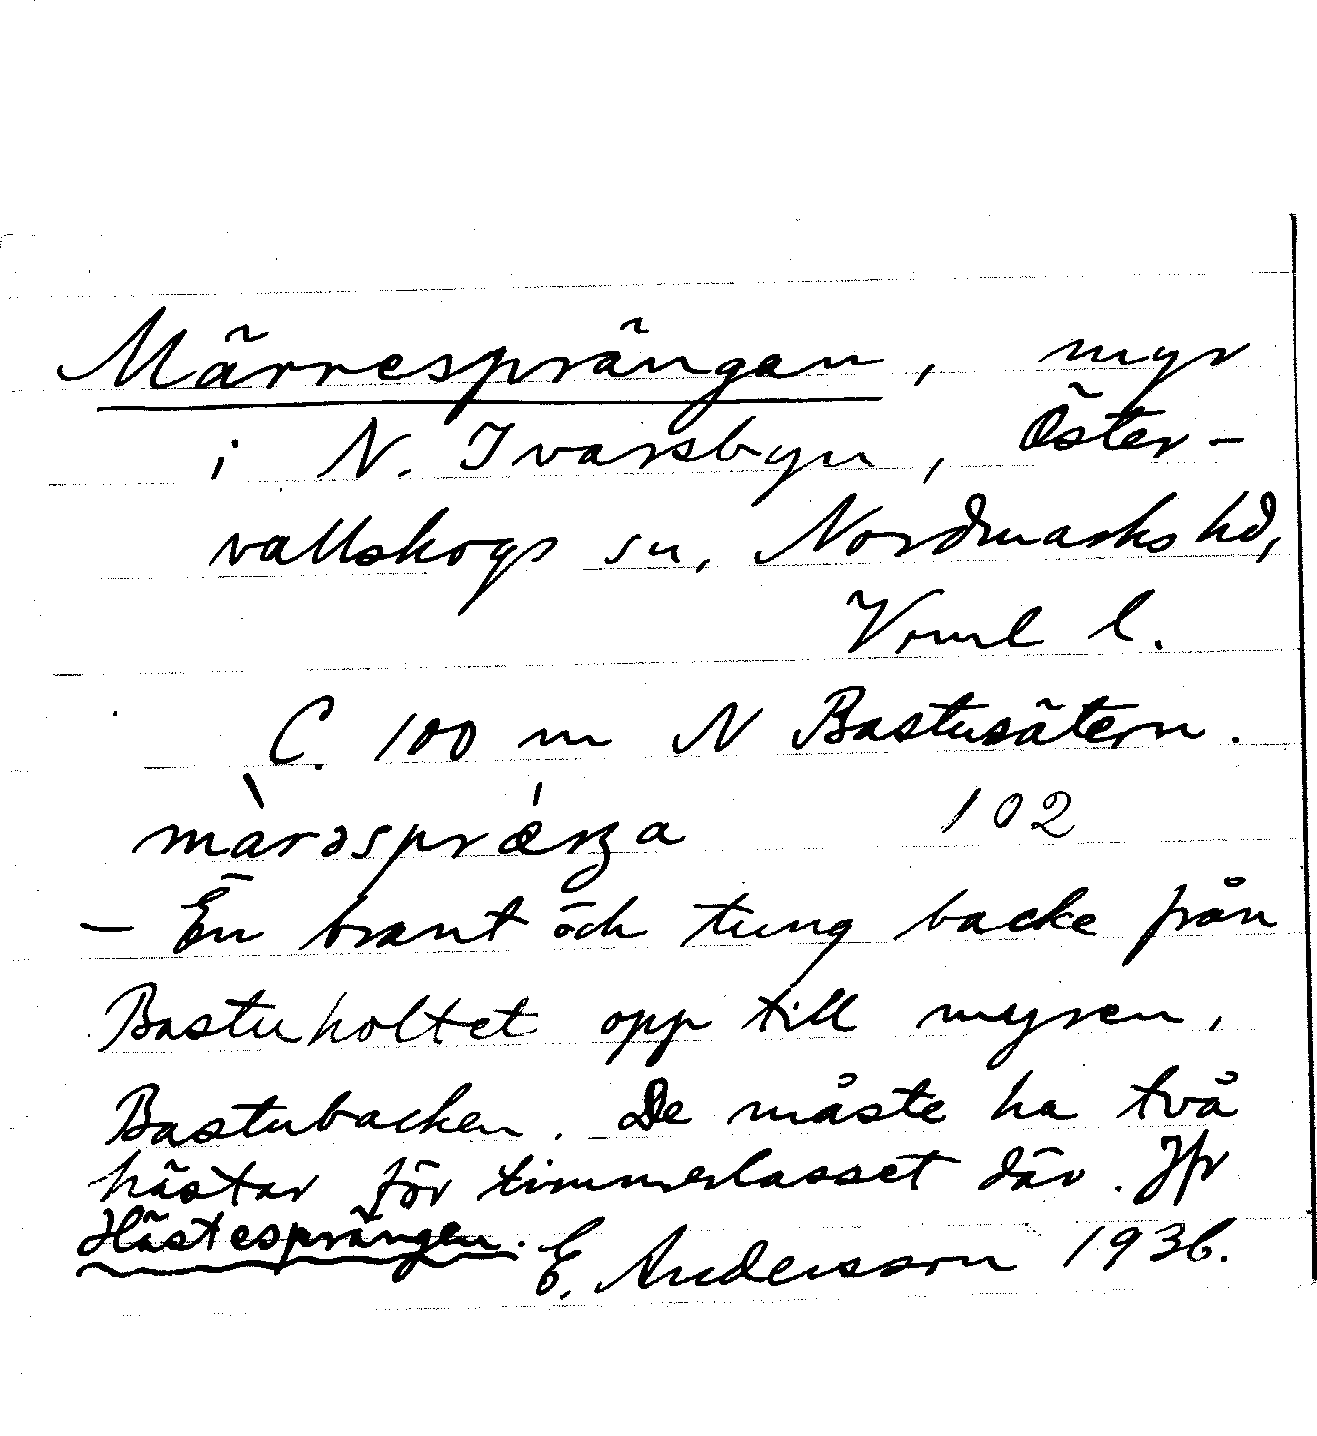 Märresprängan, myr
i N. Ivarsbyn, Öster-
vallskogs sn, Nordmarks hd,
Vrml l.
C. 100 m N Bastusätern.
màrəsprǽŋa 102
- En brant och tung backe från
Bastuholtet opp till myren,
Bastubacken. De måste ha två
hästar för timmerlasset där. Jfr
Hästesprängen.
E. Andersson 1936.